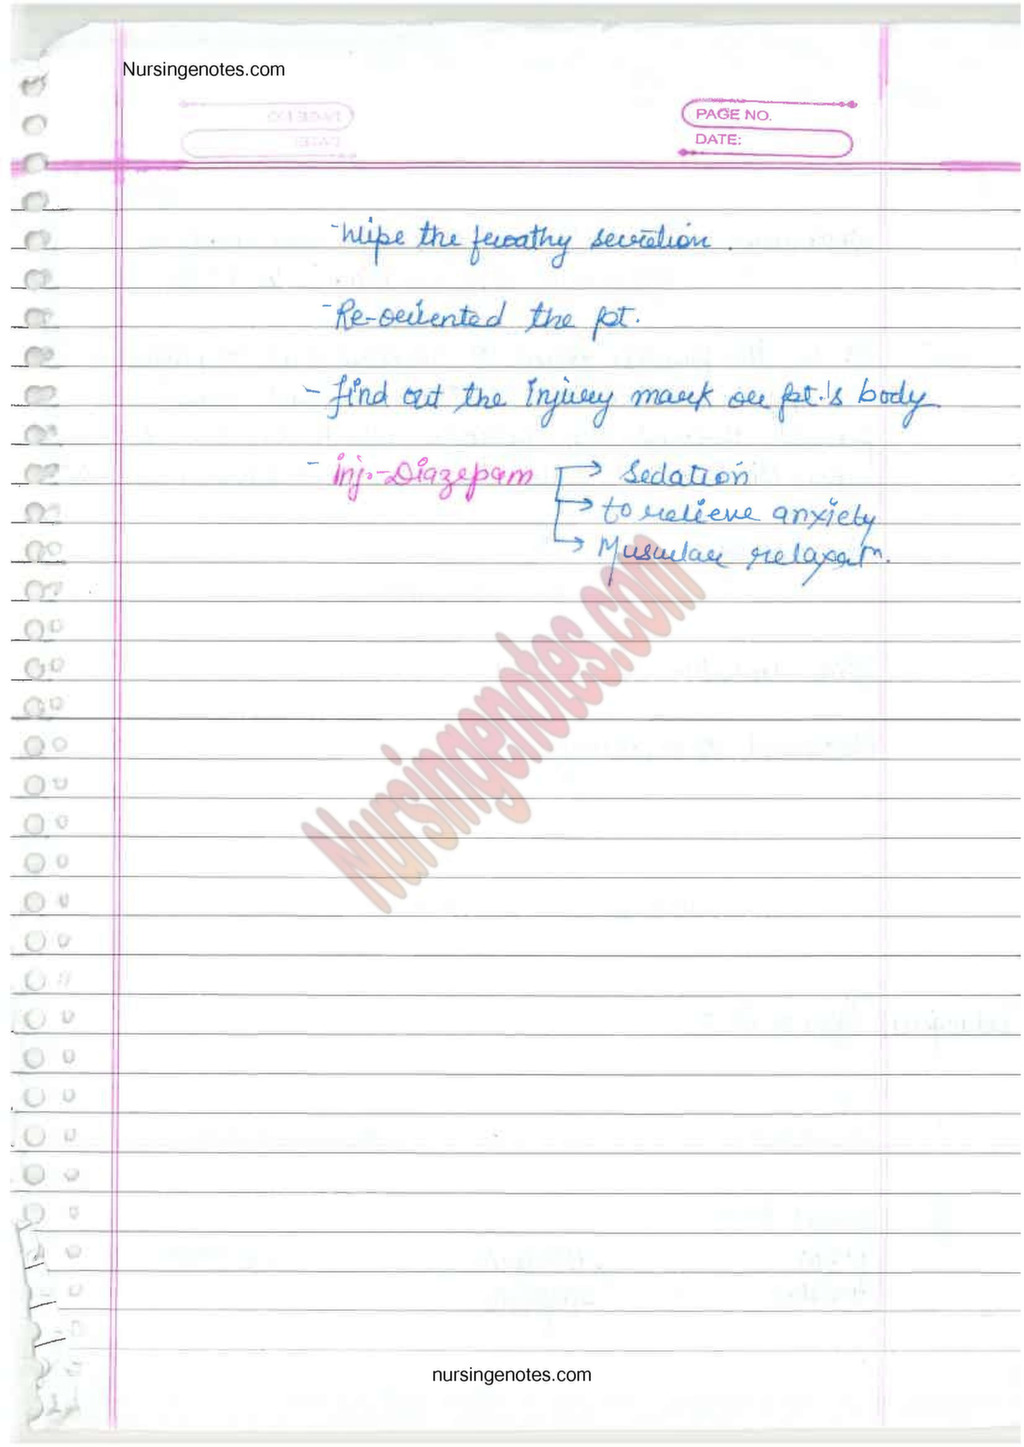 Nursingenotes.com
PAGE NO.
DATE:
- Wipe the frothy secretion.
- Re-oriented the pt.
- find out the Injury mark on pt.'s body
- inj.-Diazepam → Sedation
→ to relieve anxiety
→ Muscular relaxam.
Nursingenotes.com
nursingenotes.com